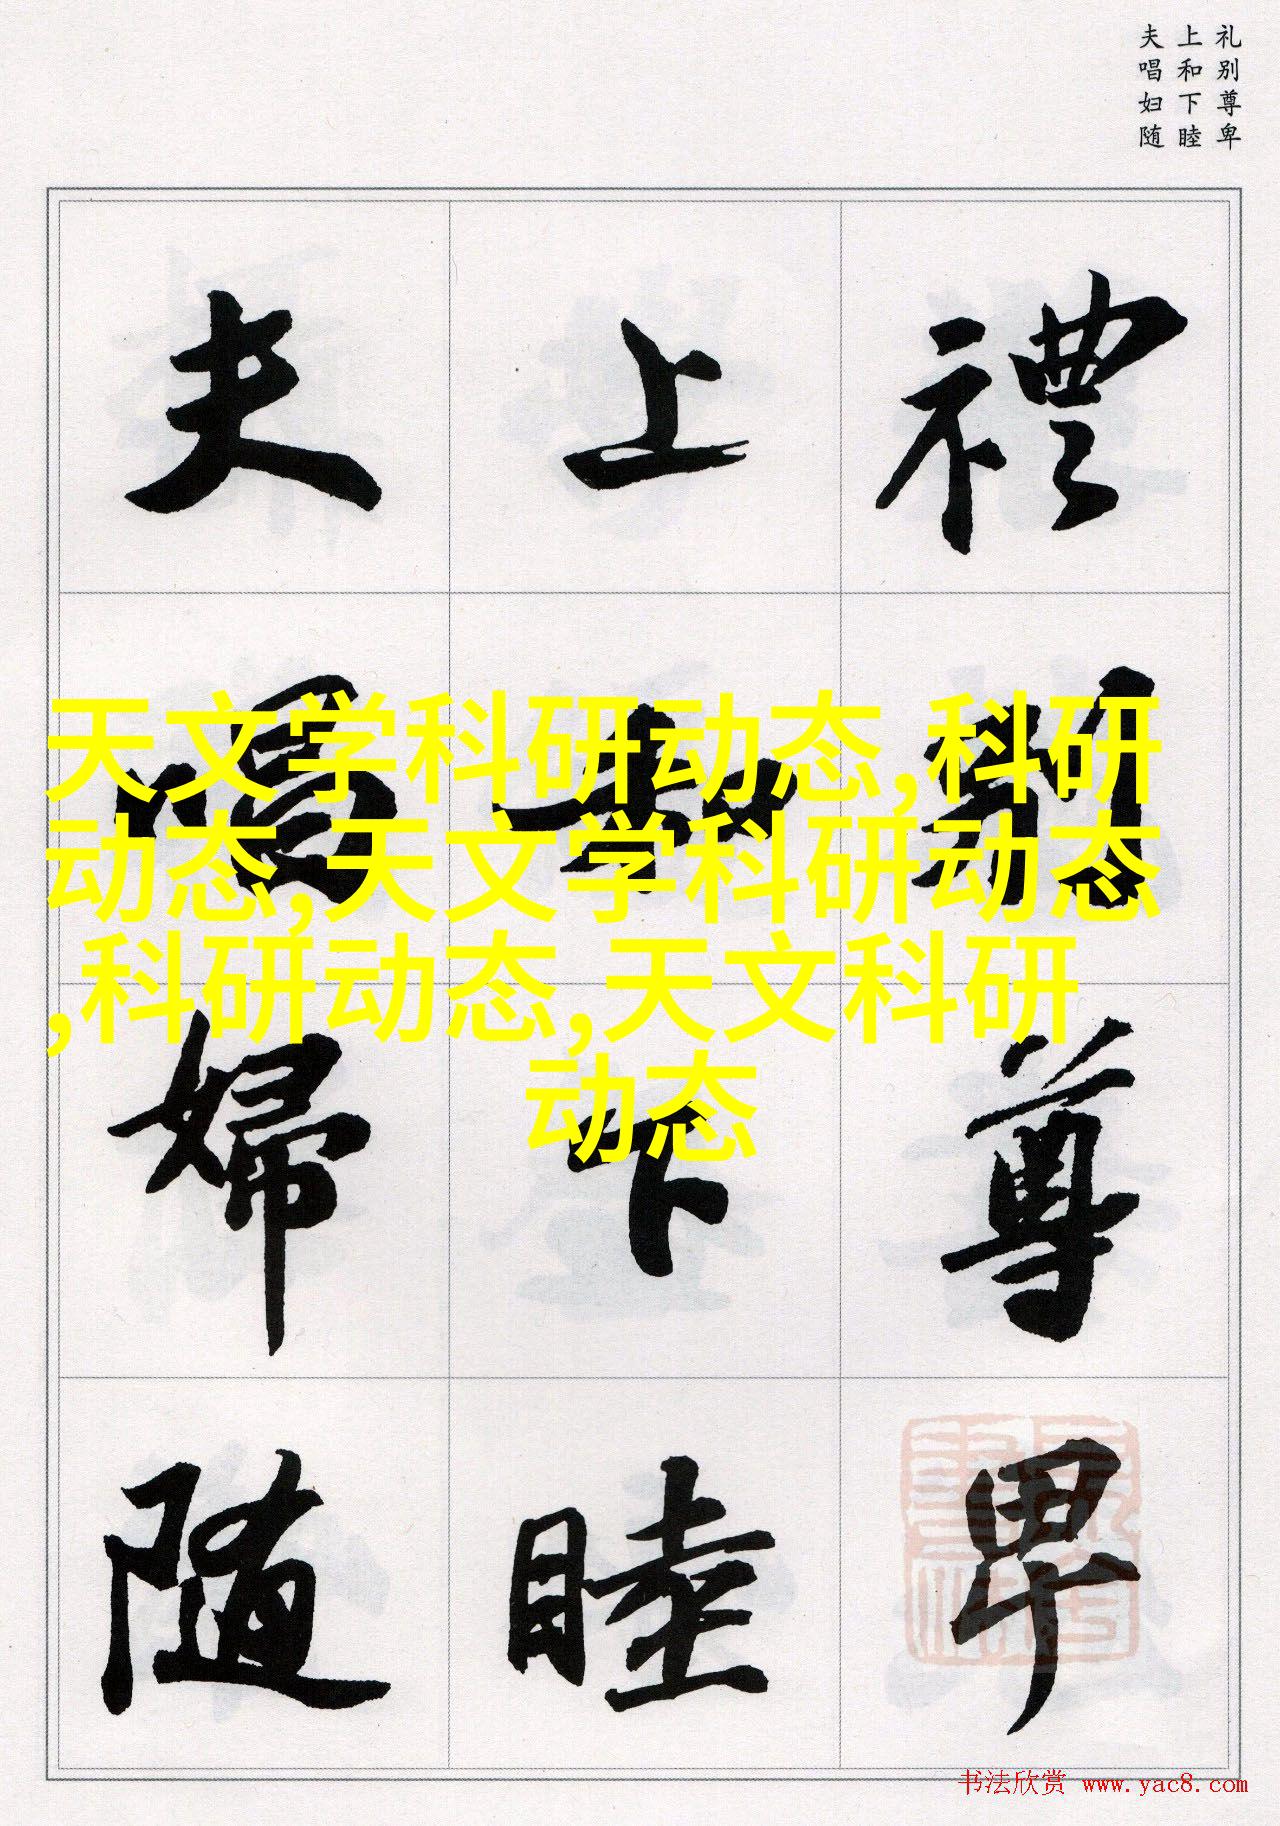 礼别尊卑
上和下睦
夫唱妇随
禮別尊卑
上和下睦
夫唱婦随
天文学科研动态,科研
动态,天文学科研动态
,科研动态,天文科研
动态
书法欣赏 www.yac8.com